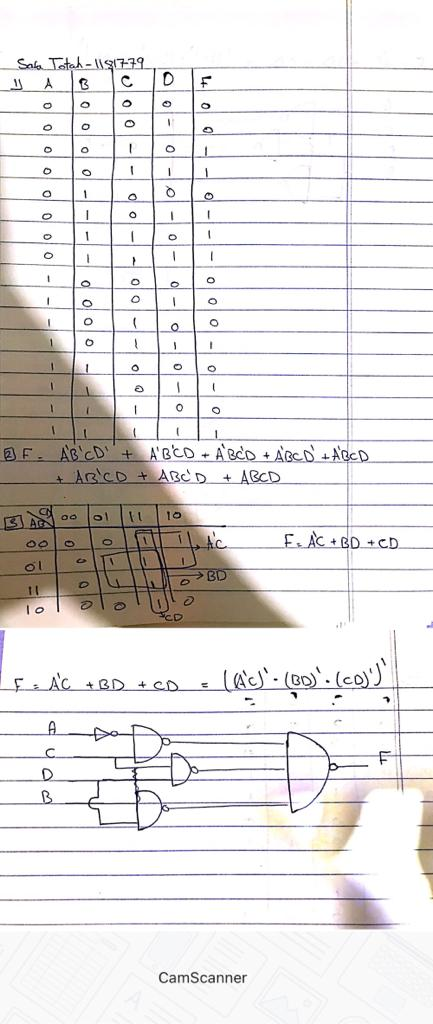 Sara Totah - 1181779
1) A B C D F
0 0 0 0 0
0 0 0 1 0
0 0 1 0 1
0 0 1 1 1
0 1 0 0 0
0 1 0 1 1
0 1 1 0 1
0 1 1 1 1
1 0 0 0 0
1 0 0 1 0
1 0 1 0 0
1 0 1 1 1
1 1 0 0 0
1 1 0 1 1
1 1 1 0 0
1 1 1 1 1
2 F = A'B'CD' + A'B'CD + A'BC'D + A'BCD' + A'BCD
+ AB'CD + ABC'D + ABCD
3 AB CD 00 01 11 10
00 0 0 1 1 A'C F = A'C + BD + CD
01 0 1 1 1
11 0 1 1 0 BD
10 0 0 1 0
CD
F = A'C + BD + CD = ((A'C)' · (BD)' · (CD)')'
A
C
D
B
F
CamScanner